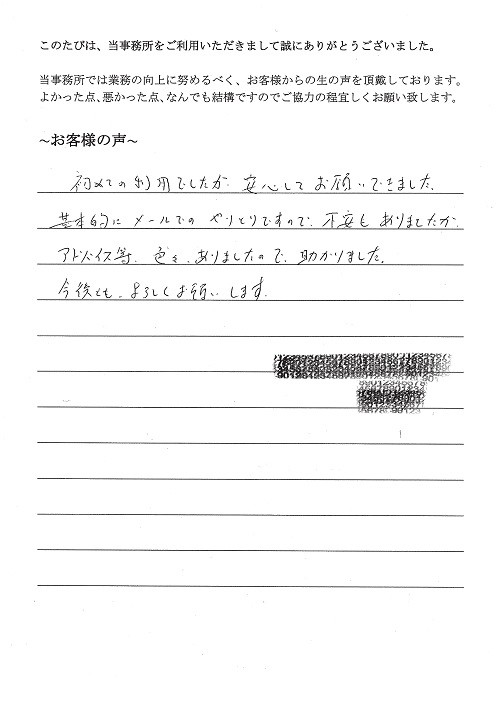 このたびは、当事務所をご利用いただきまして誠にありがとうございました。
当事務所では業務の向上に努めるべく、お客様からの生の声を頂戴しております。
よかった点、悪かった点、なんでも結構ですのでご協力の程宜しくお願い致します。
~お客様の声~
初めての利用でしたが、安心してお願いできました。
基本的にメールでのやりとりですので、不安もありましたが、
アドバイス等、色々、ありましたので、助かりました。
今後とも、よろしくお願いします。